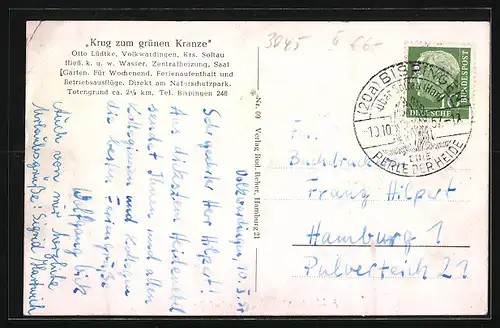 „Krug zum grünen Kranze"
Otto Lüdtke, Volkwardingen, Krs. Soltau
fließ. k. u. w. Wasser, Zentralheizung, Saal
[Garten. Für Wochenend, Ferienaufenthalt und
Betriebsausflüge. Direkt am Naturschutzpark.
Totengrund ca. 2½ km. Tel. Bispingen 248
Nr. 69 Verlag Rud. Reher, Hamburg 21
DEUTSCHE
BUNDESPOST
10
(20a) BISPINGEN
PERLE DER HEIDE
Volkwardingen, 10.
Sehr geehrter Herr Hilpert!
Aus
sendet Ihnen und allen
Kolleginnen und Kollegen
die besten Feriengrüße
Wolfgang
Auch von mir herzliche
Urlaubsgrüße! Sigrid
Buchdruck
Franz Hilpert
Hamburg 1
Pulverteich 21